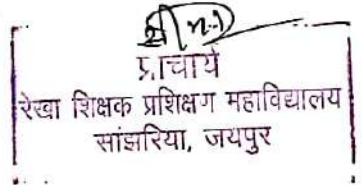 प्राचार्य
रेखा शिक्षक प्रशिक्षण महाविद्यालय
सांझरिया, जयपुर